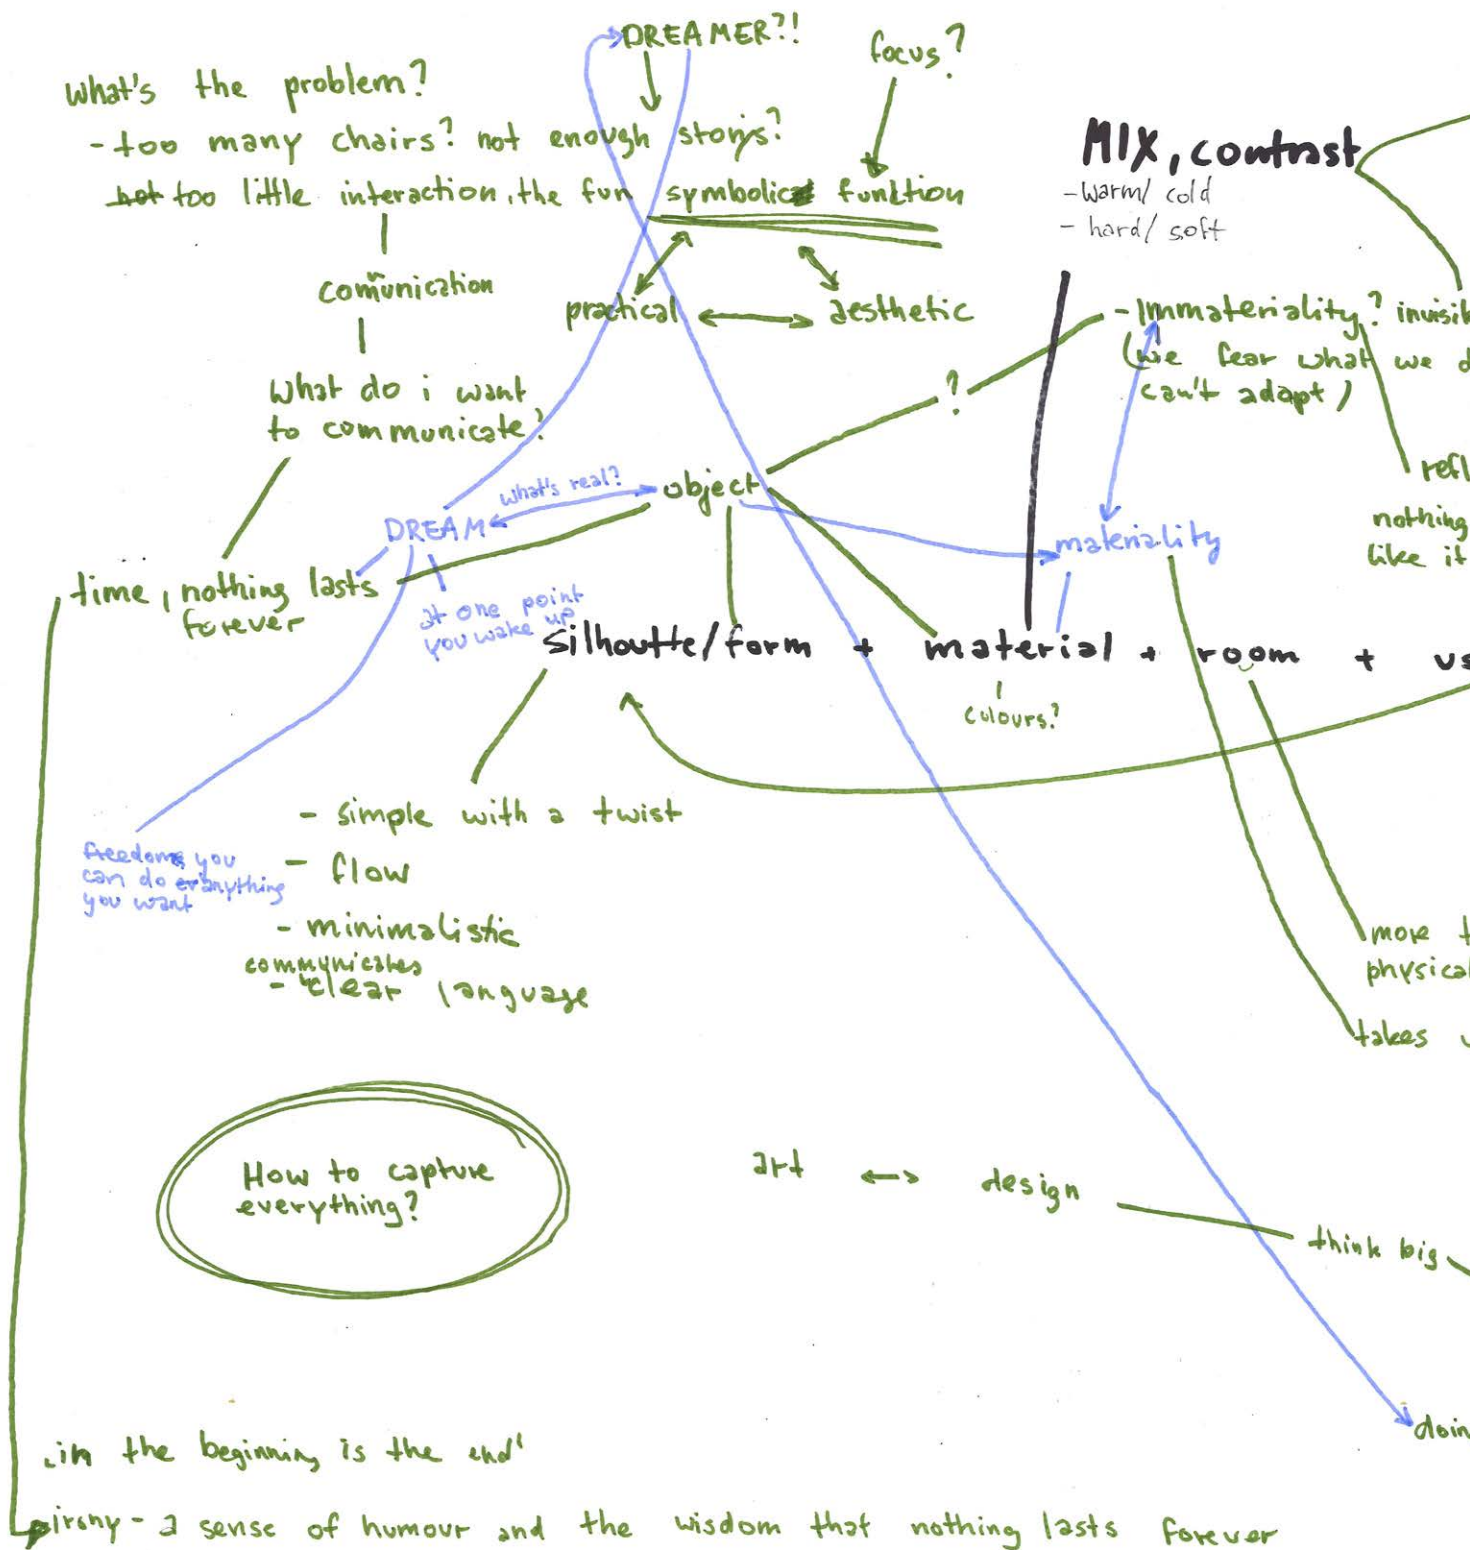 DREAMER?!
focus?
what's the problem?
- too many chairs? not enough storys?
not too little interaction, the fun symbolic funktion
MIX, contrast
- warm/ cold
- hard/ soft
comunication
practical
aesthetic
- Immateriality? invisib
(we fear what we d
can't adapt)
?
what do i want
to communicate?
what's real?
object
DREAM
materiality
refl
nothing
like it
time, nothing lasts
forever
at one point
you wake up
silhoutte/form + material + room + us
colours?
- simple with a twist
freedom, you
can do anything
you want
- flow
- minimalistic
communicates
- clear language
more t
physical
takes u
How to capture
everything?
art
design
think big
doin
"in the beginning is the end"
irony - a sense of humour and the wisdom that nothing lasts forever